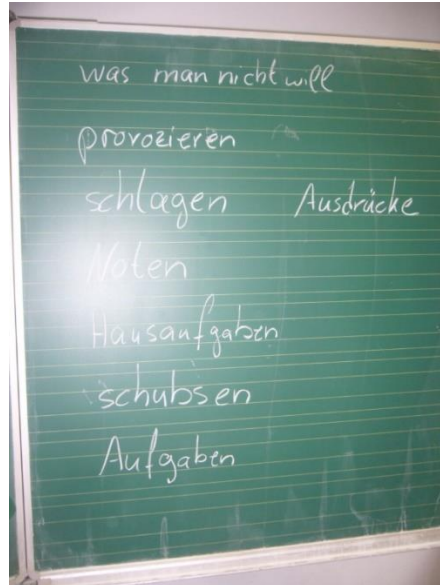 was man nicht will
provozieren
schlagen Ausdrücke
Noten
Hausaufgaben
schubsen
Aufgaben